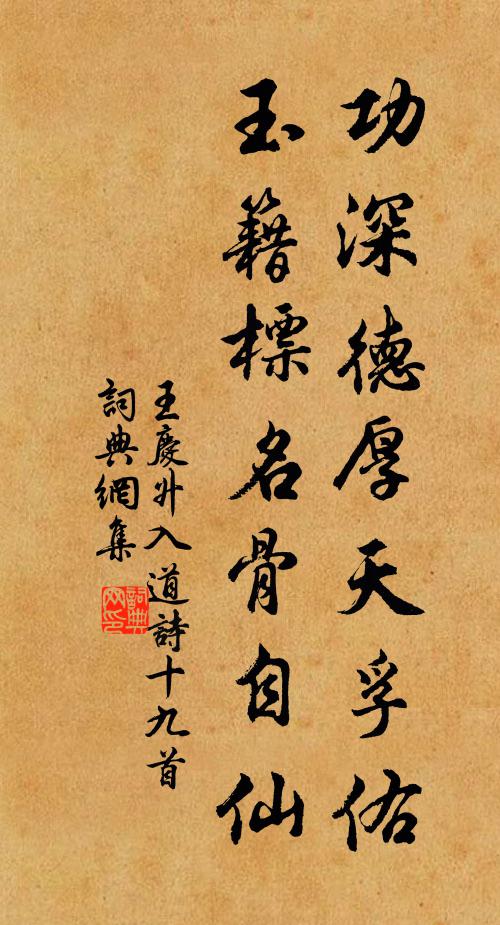 功深德厚天孚佑
玉籍標名骨自仙
王慶升入道詩十九首
詞典網集
詞典网印